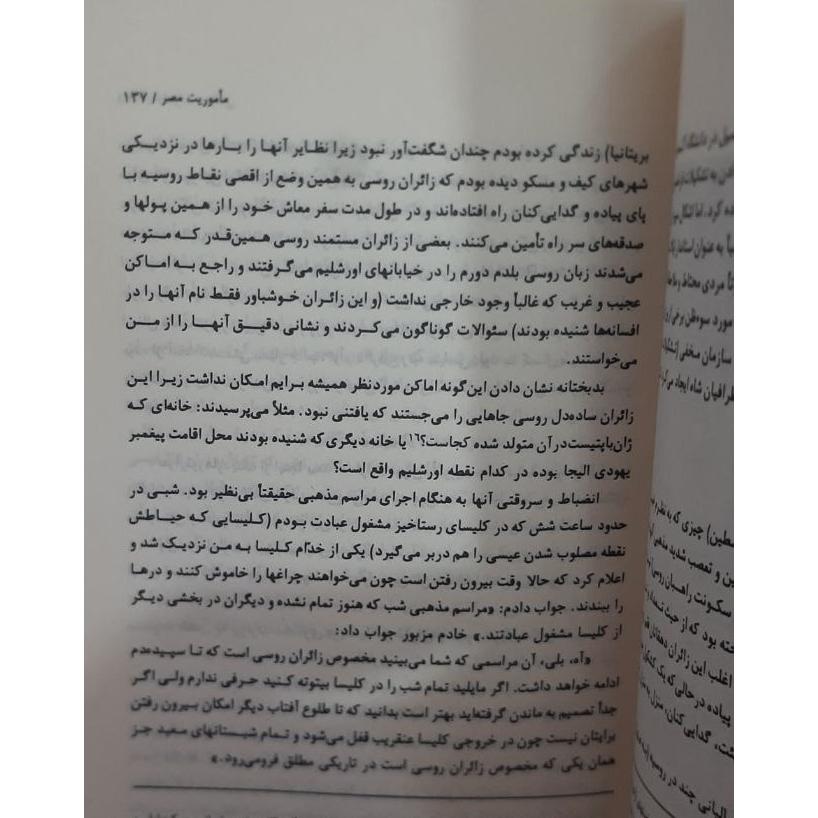 مأموریت مصر / ۱۳۷
بریتانیا) زندگی کرده بودم چندان شگفت‌آور نبود زیرا نظایر آنها را بارها در نزدیکی
شهرهای کیف و مسکو دیده بودم که زائران روسی به همین وضع از اقصی نقاط روسیه با
پای پیاده و گدایی‌کنان راه افتاده‌اند و در طول مدت سفر معاش خود را از همین پولها و
صدقه‌های سر راه تأمین می‌کنند. بعضی از زائران مستمند روسی همین‌قدر که متوجه
می‌شدند زبان روسی بلدم دورم را در خیابانهای اورشلیم می‌گرفتند و راجع به اماکن
عجیب و غریب که غالباً وجود خارجی نداشت (و این زائران خوشباور فقط نام آنها را در
افسانه‌ها شنیده بودند) سئوالات گوناگون می‌کردند و نشانی دقیق آنها را از من
می‌خواستند.
بدبختانه نشان دادن این‌گونه اماکن موردنظر همیشه برایم امکان نداشت زیرا این
زائران ساده‌دل روسی جاهایی را می‌جستند که یافتنی نبود. مثلاً می‌پرسیدند: خانه‌ای که
ژان‌باپتیست در آن متولد شده کجاست؟۱۶ یا خانه دیگری که شنیده بودند محل اقامت پیغمبر
یهودی الیجا بوده در کدام نقطه اورشلیم واقع است؟
انضباط و سروقتی آنها به هنگام اجرای مراسم مذهبی حقیقتاً بی‌نظیر بود. شبی در
حدود ساعت شش که در کلیسای رستاخیز مشغول عبادت بودم (کلیسایی که حیاطش
نقطه مصلوب شدن عیسی را هم دربر می‌گیرد) یکی از خدّام کلیسا به من نزدیک شد و
اعلام کرد که حالا وقت بیرون رفتن است چون می‌خواهند چراغها را خاموش کنند و درها
را ببندند. جواب دادم: «مراسم مذهبی شب که هنوز تمام نشده و دیگران در بخشی دیگر
از کلیسا مشغول عبادتند.» خادم مزبور جواب داد:
«آه، بلی، آن مراسمی که شما می‌بینید مخصوص زائران روسی است که تا سپیده‌دم
ادامه خواهد داشت. اگر مایلید تمام شب را در کلیسا بیتوته کنید حرفی ندارم ولی اگر
جداً تصمیم به ماندن گرفته‌اید بهتر است بدانید که تا طلوع آفتاب دیگر امکان بیرون رفتن
برایتان نیست چون در خروجی کلیسا عنقریب قفل می‌شود و تمام شبستانهای معبد جز
همان یکی که مخصوص زائران روسی است در تاریکی مطلق فرومی‌رود.»